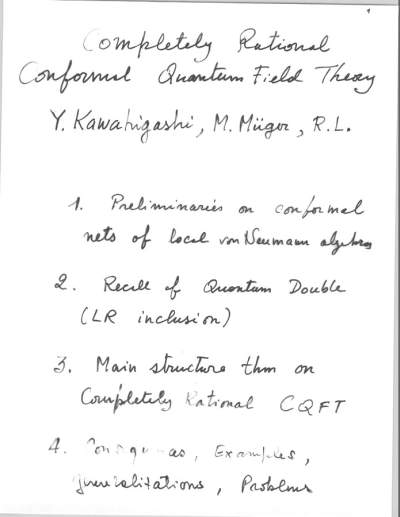 Completely Rational
Conformal Quantum Field Theory
Y. Kawahigashi, M. Müger, R.L.
1. Preliminaries on conformal
nets of local von Neumann algebras
2. Recall of Quantum Double
(LR inclusion)
3. Main structure thm on
Completely Rational CQFT
4. Examples,
Generalizations, Problems